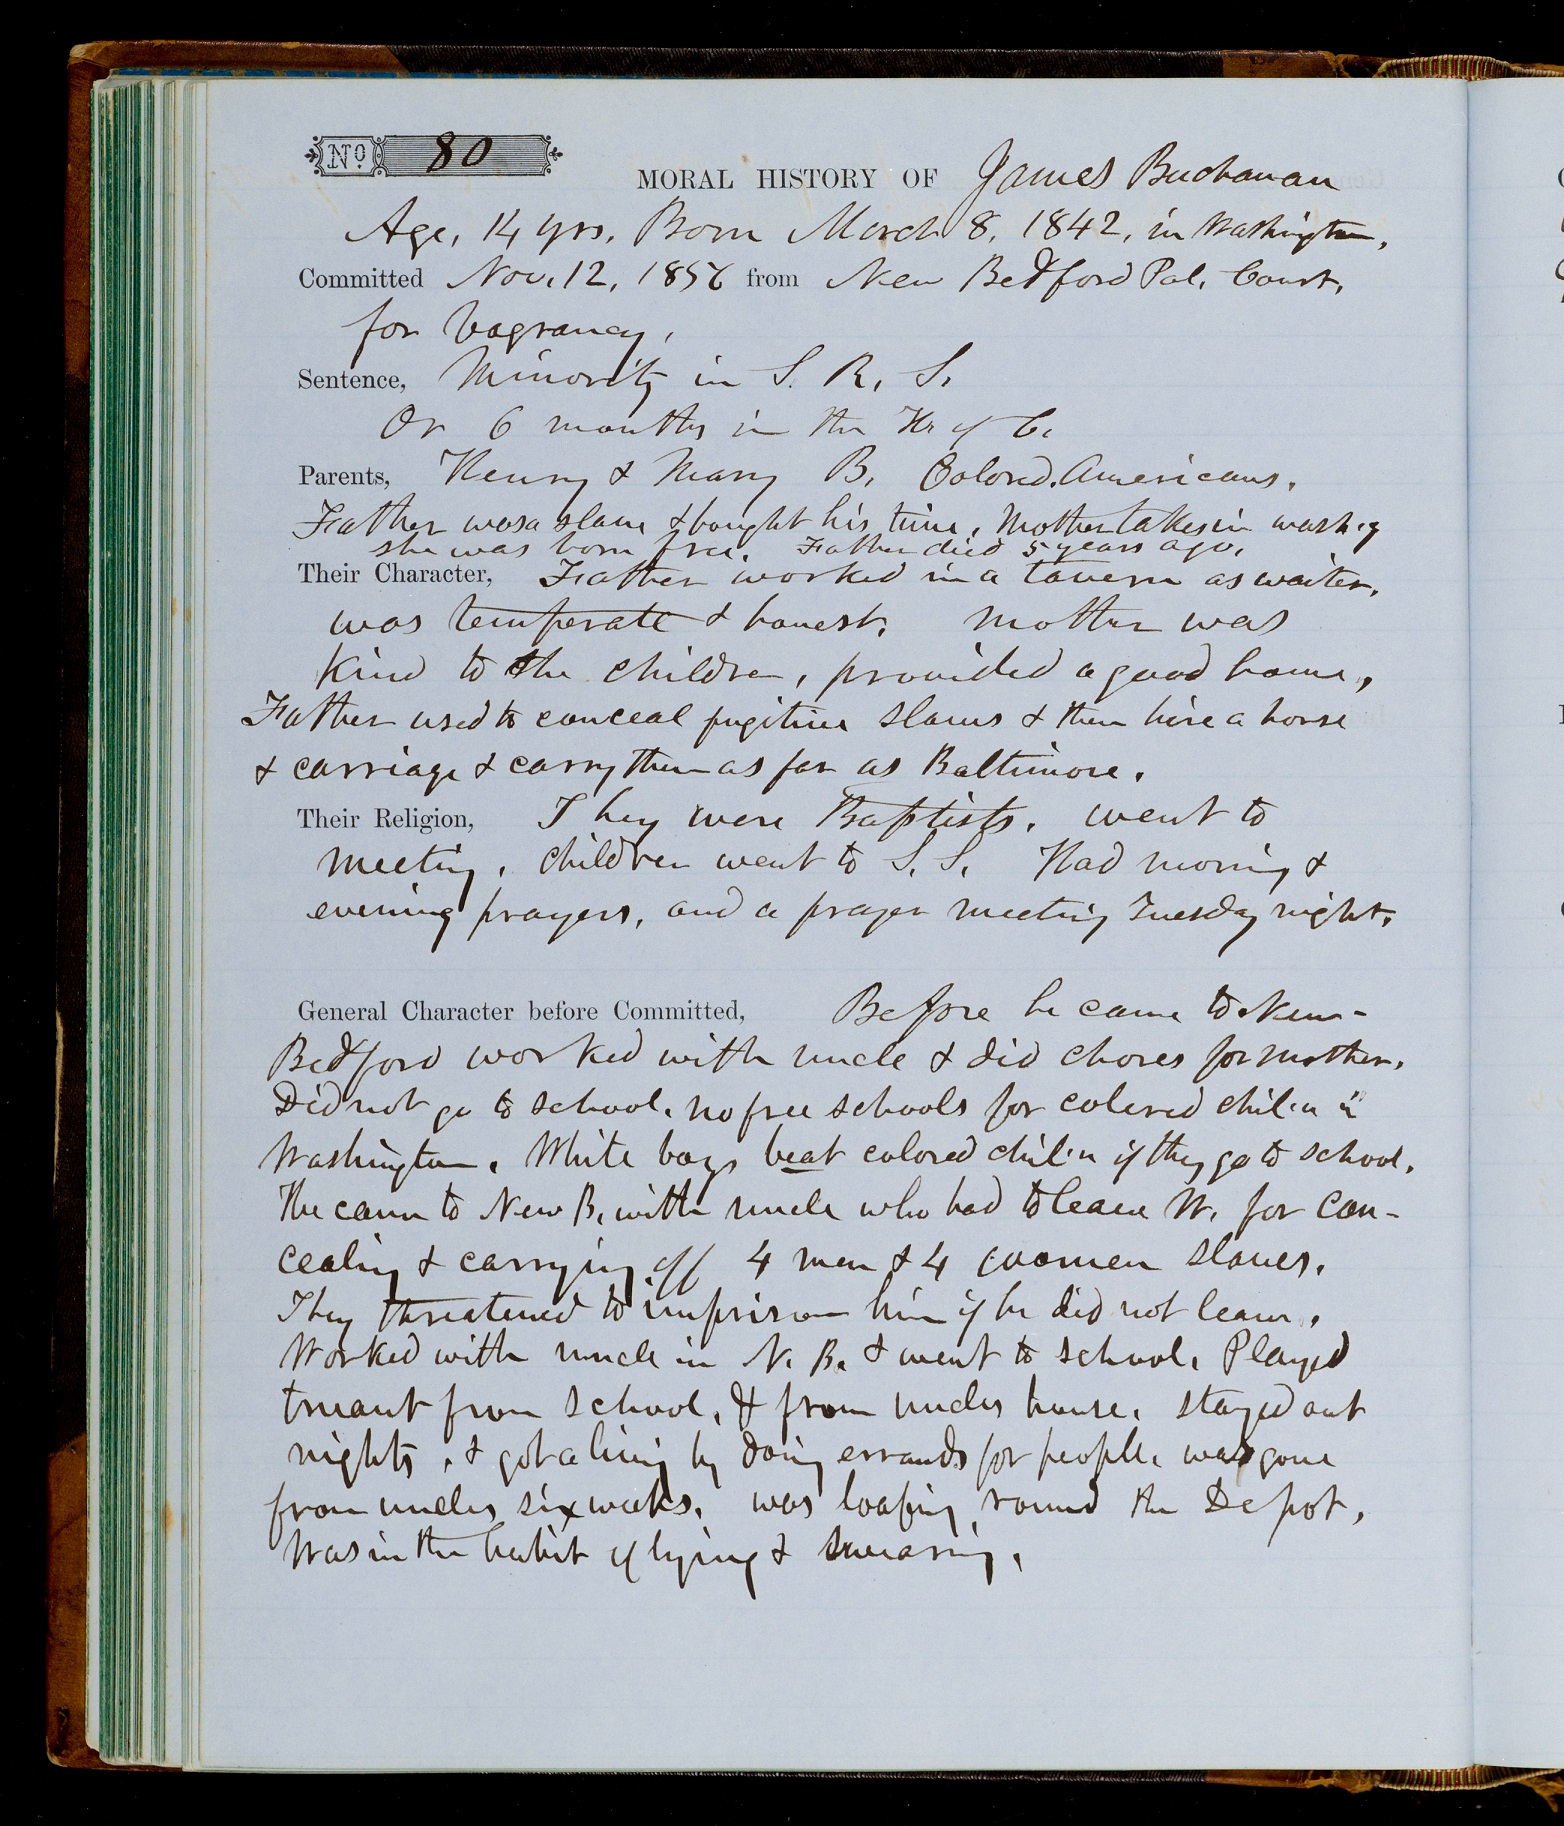 No. 80
MORAL HISTORY OF James Buchanan
Age, 14 yrs. Born March 8, 1842, in Washington.
Committed Nov. 12, 1856 from New Bedford Pol. Court,
for Vagrancy.
Sentence, Minority in S. R. S.
Or 6 months in the H. of C.
Parents, Henry & Mary B. Colored Americans.
Father was a slave & bought his time. Mother takes in wash.g
she was born free. Father died 5 years ago.
Their Character, Father worked in a tavern as waiter,
was temperate & honest. Mother was
kind to the children, provided a good home,
Father used to conceal fugitive slaves & then hire a horse
& carriage & carry them as far as Baltimore.
Their Religion, They were Baptists. went to
meeting. children went to S. S. Had morning &
evening prayers, and a prayer meeting Tuesday night.
General Character before Committed, Before he came to New-
Bedford worked with uncle & did chores for mother.
Did not go to school. no free schools for colered chil.n in
Washington. White boys beat colored chil.n if they go to school.
He came to New B. with uncle who had to leave W. for con-
cealing & carrying off 4 men & 4 women slaves.
They threatened to imprison him if he did not leave.
Worked with uncle in N. B. & went to school. Played
truant from school, & from uncles house. stayed out
nights, & got a living by doing errands for people. was gone
from uncles six weeks. was loafing round the Depot.
Was in the habit of lying & swearing.